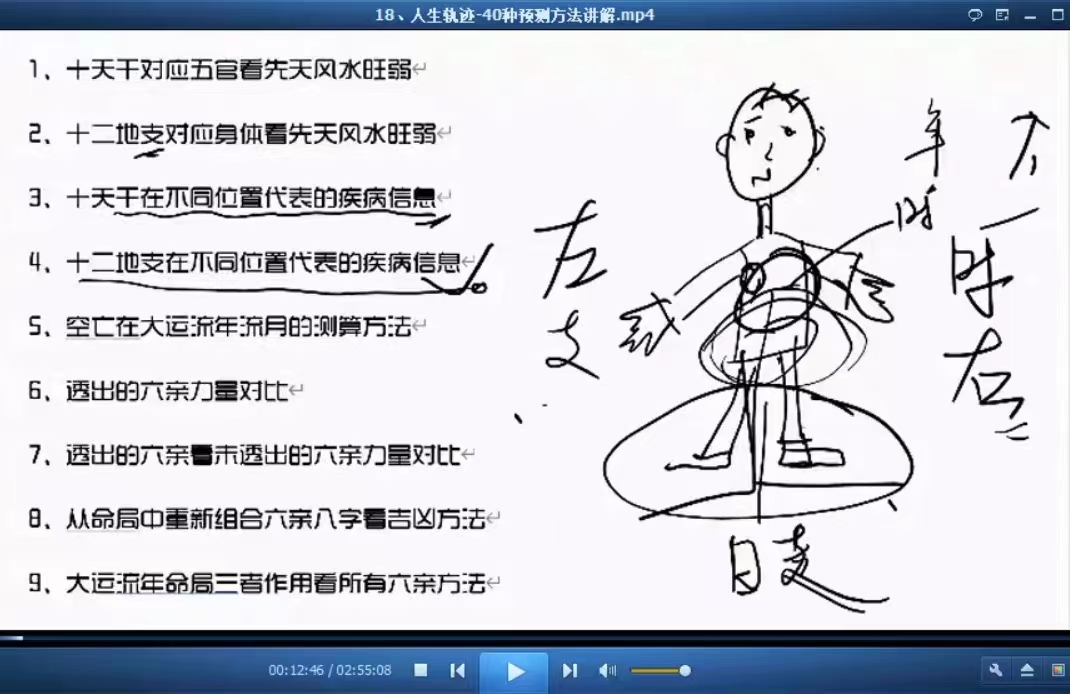 18、人生轨迹-40种预测方法讲解.mp4
1、十天干对应五官看先天风水旺弱
2、十二地支对应身体看先天风水旺弱
3、十天干在不同位置代表的疾病信息
4、十二地支在不同位置代表的疾病信息
5、空亡在大运流年流月的测算方法
6、透出的六亲力量对比
7、透出的六亲看未透出的六亲力量对比
8、从命局中重新组合六亲八字看吉凶方法
9、大运流年命局三者作用看所有六亲方法
年
时
左
支
时
右
日支
00:12:46 / 02:55:08